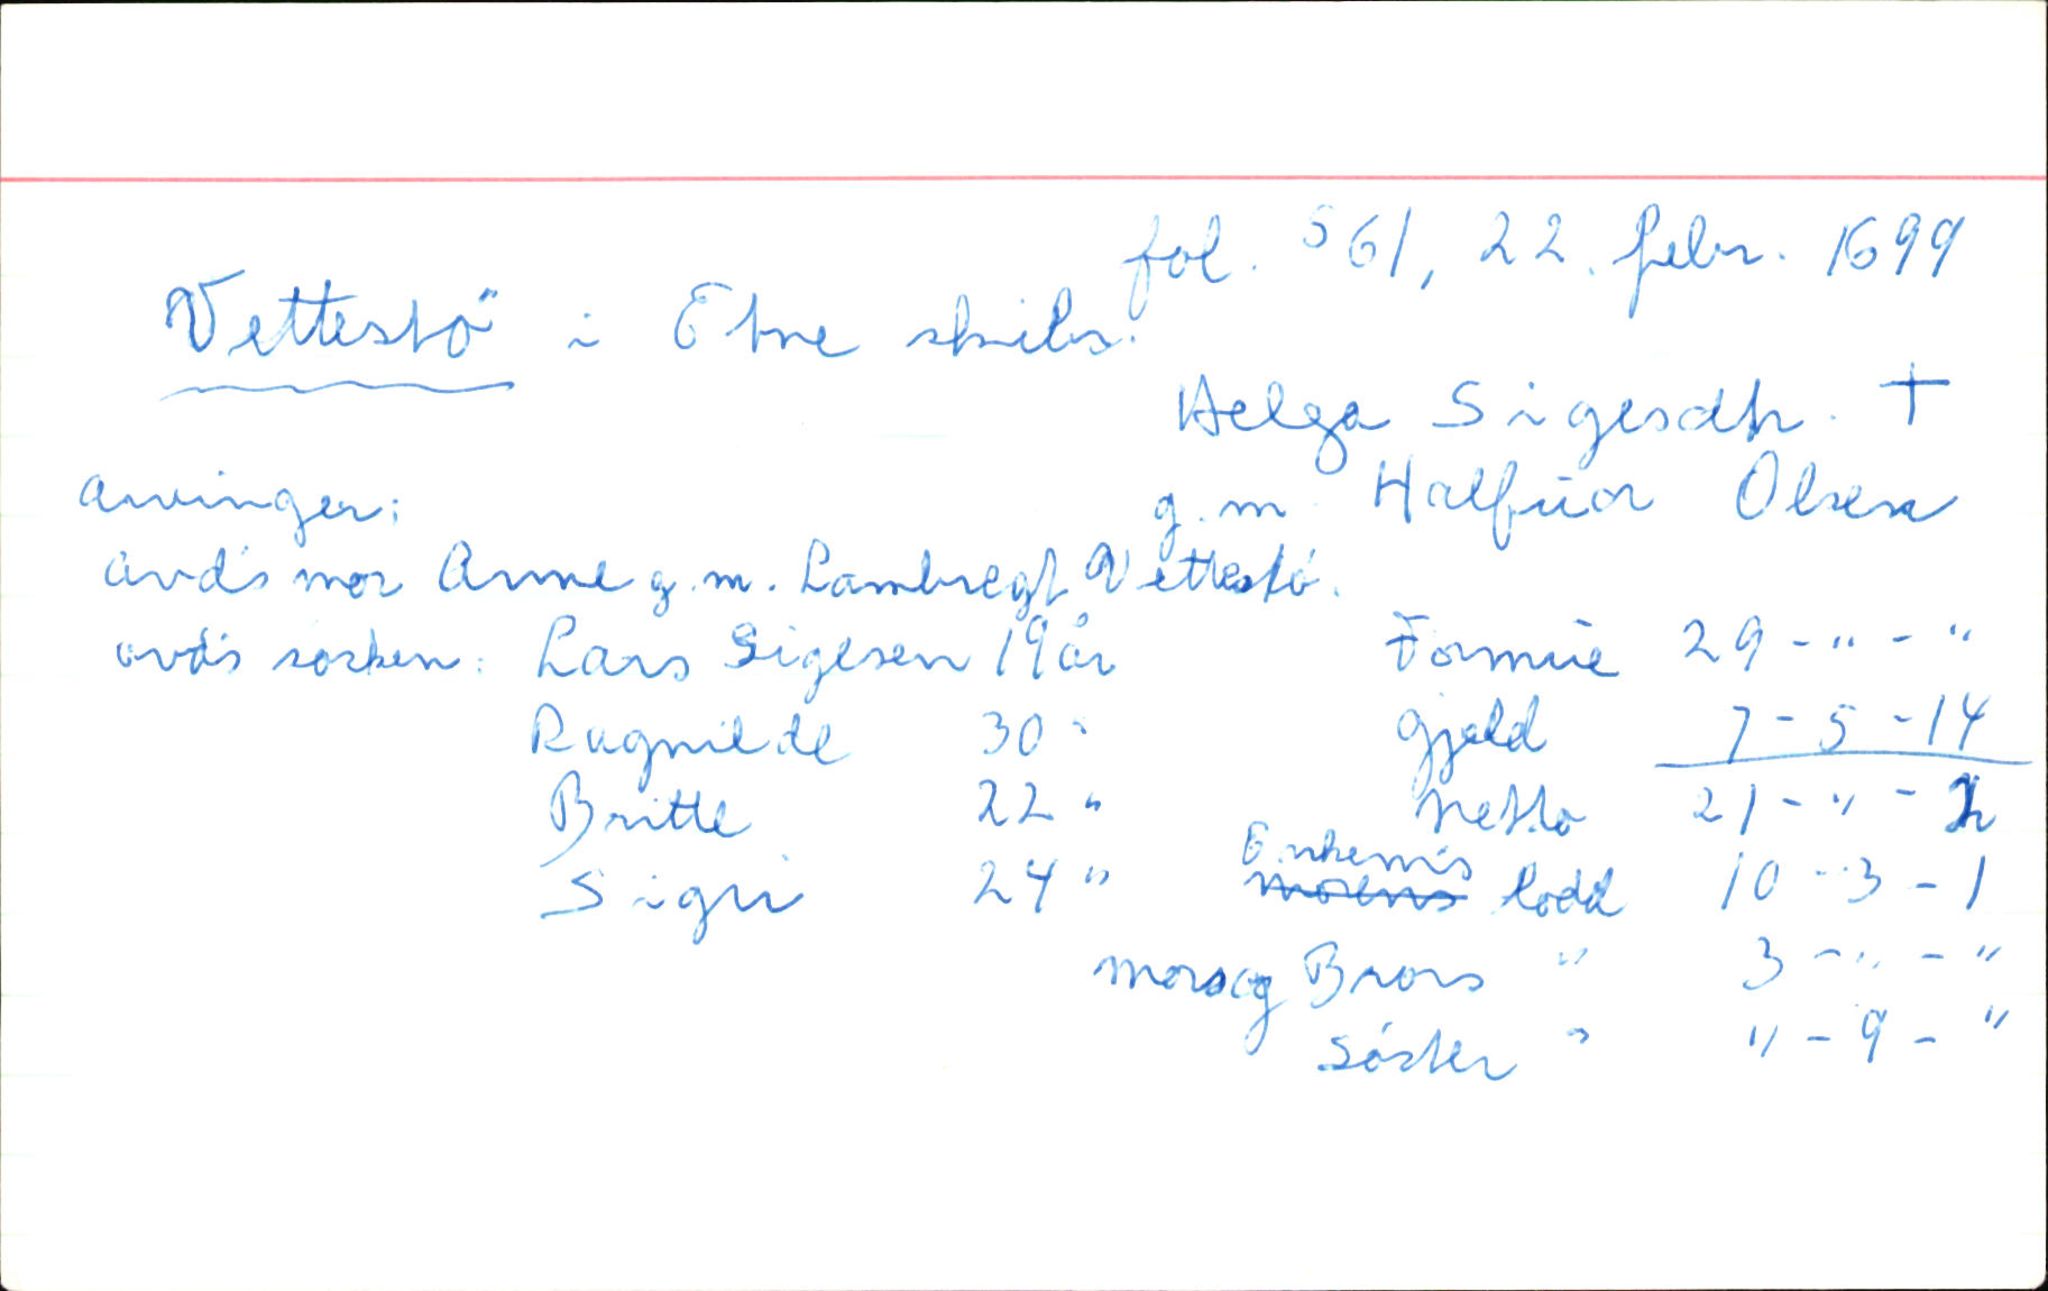 fol. 561, 22. febr. 1699
Vettestö i Etne skibr.
Helga Sigesdtr. †
arvinger: g.m. Halfuor Olsen
avd's mor Anne g.m. Lambregt Vettestö.
avd's søsken: Lars Sigesen 19 år Formue 29 - " - "
Ragnilde 30 " Gjeld 7 - 5 - 14
Britte 22 " Netto 21 - " - 2
Sigri 24 " Enkem's morens lodd 10 - 3 - 1
mors og Brors " 3 - " - "
Søster " " - 9 - "